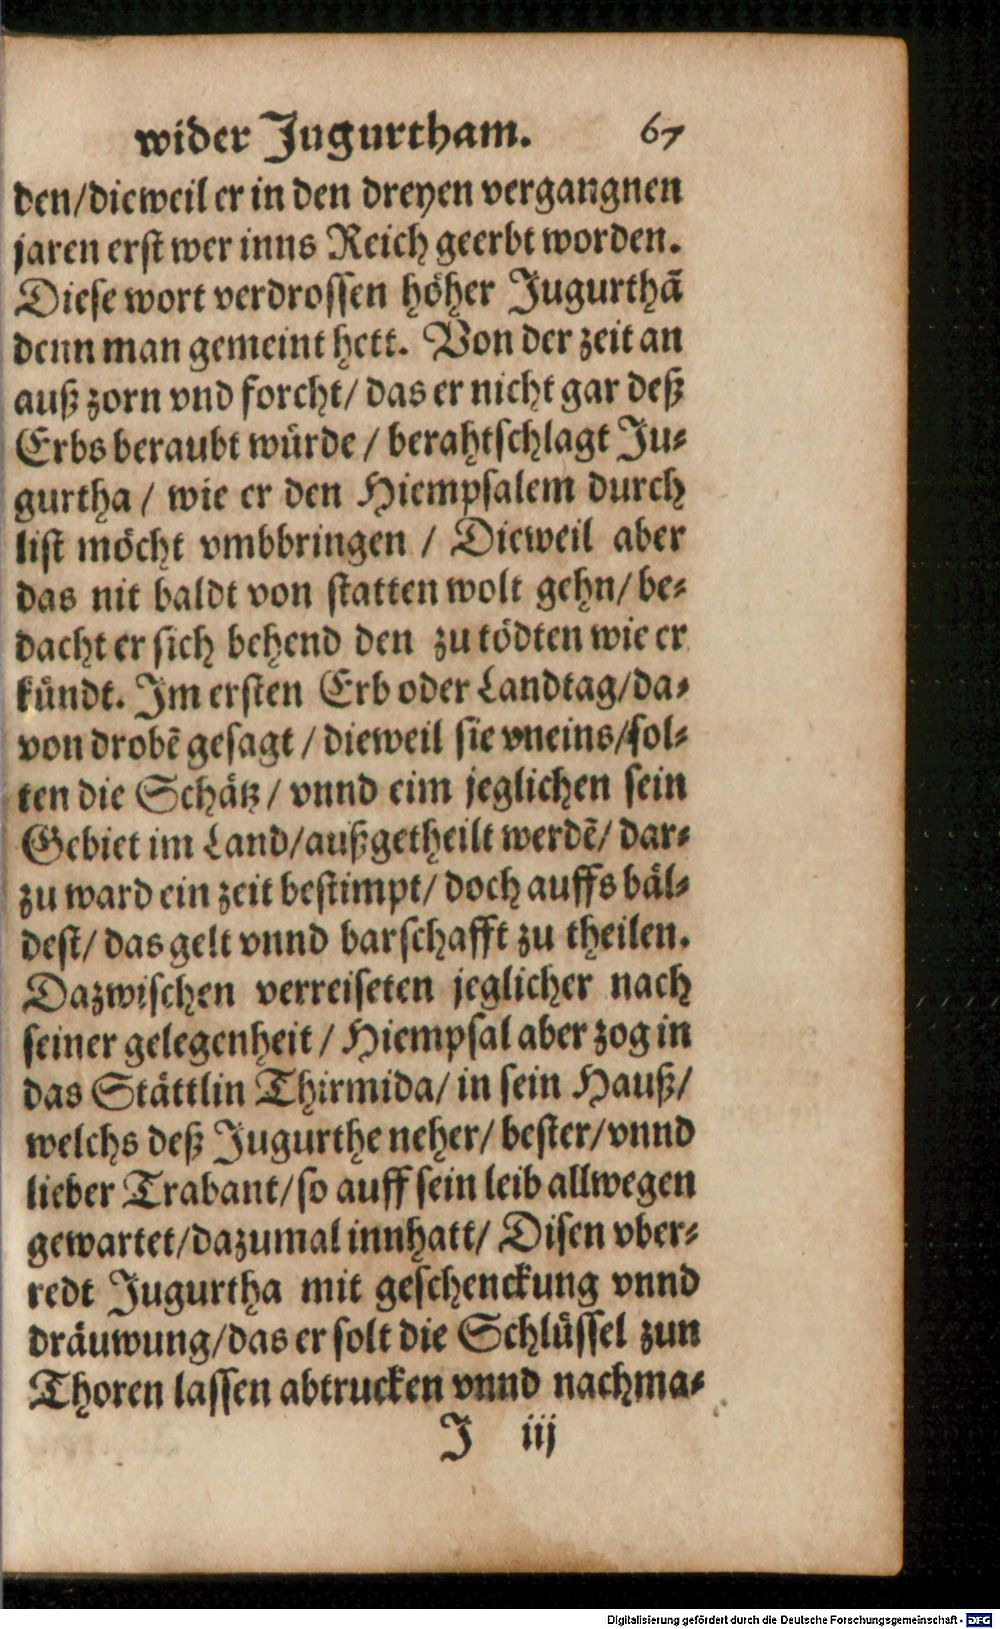 wider Jugurtham. 67
den/dieweil er in den dreyen vergangnen
jaren erst wer inns Reich geerbt worden.
Diese wort verdrossen höher Jugurthã
denn man gemeint hett. Von der zeit an
auß zorn vnd forcht/ das er nicht gar deß
Erbs beraubt würde / berahtschlagt Ju-
gurtha / wie er den Hiempsalem durch
list möcht vmbbringen / Dieweil aber
das nit baldt von statten wolt gehn/ be-
dacht er sich behend den zu tödten wie er
kündt. Im ersten Erb oder Landtag/da-
von drobẽ gesagt / dieweil sie vneins/sol-
ten die Schätz / vnnd eim jeglichen sein
Gebiet im Land/außgetheilt werdẽ/ dar-
zu ward ein zeit bestimpt/ doch auffs bäl-
dest/ das gelt vnnd barschafft zu theilen.
Dazwischen verreiseten jeglicher nach
seiner gelegenheit / Hiempsal aber zog in
das Stättlin Thirmida/ in sein Hauß/
welchs deß Jugurthe neher/ bester/vnnd
lieber Trabant/so auff sein leib allwegen
gewartet/dazumal innhatt/ Disen vber-
redt Jugurtha mit geschenckung vnnd
dräuwung/das er solt die Schlüssel zun
Thoren lassen abtrucken vnnd nachma-
J iij
Digitalisierung gefördert durch die Deutsche Forschungsgemeinschaft - DFG